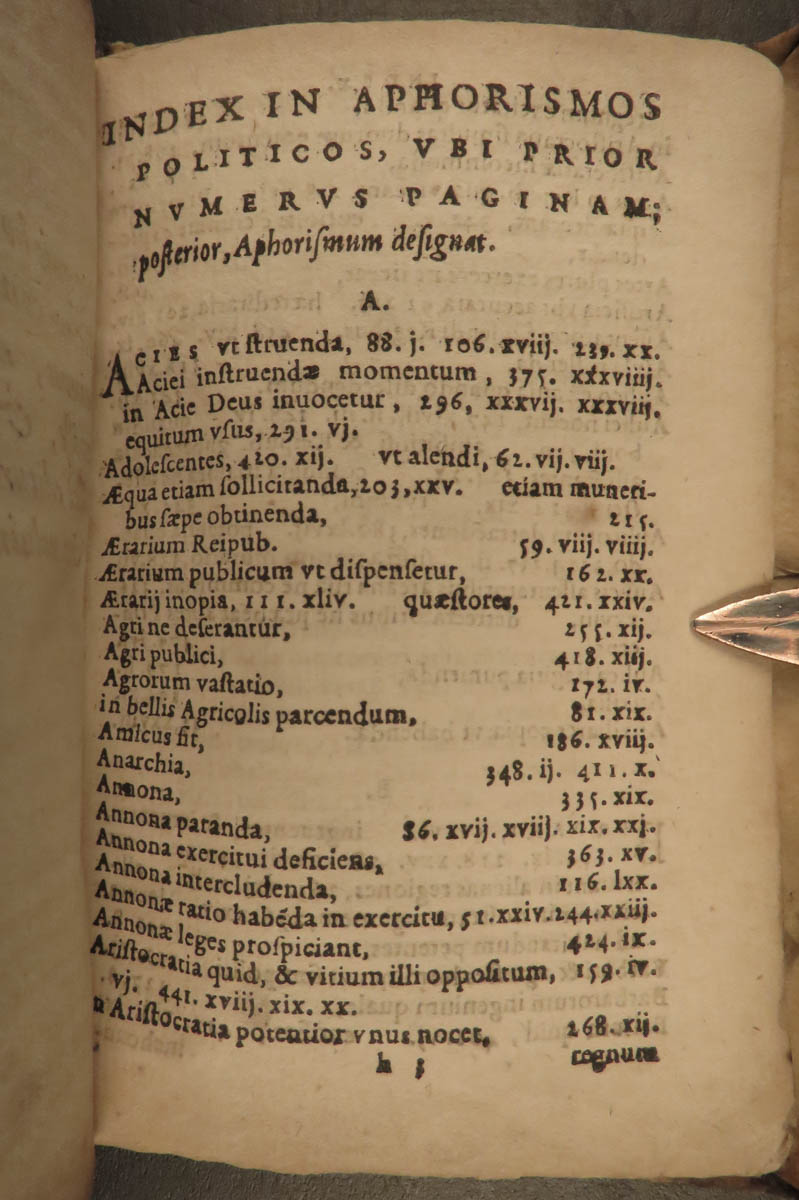 INDEX IN APHORISMOS
POLITICOS, VBI PRIOR
NVMERVS PAGINAM;
posterior, Aphoriſmum deſignat.
A.
ACIES vt ſtruenda, 88. j. 106. xviij. 239. xx.
Aciei inſtruendæ momentum, 375. xlxviiij.
in Acie Deus inuocetur, 296, xxxvij. xxxviij.
equitum vſus, 291. vj.
Adoleſcentes, 420. xij. vt alendi, 62. vij. viij.
Æqua etiam ſollicitanda, 203, xxv. etiam muneri-
bus ſæpe obtinenda, 215.
Ærarium Reipub. 59. viij. viiij.
Ærarium publicum vt diſpenſetur, 162. xx.
Ærarij inopia, 111. xliv. quæſtores, 421. xxiv.
Agri ne deſerantur, 255. xij.
Agri publici, 418. xiij.
Agrorum vaſtatio, 172. iv.
in bellis Agricolis parcendum, 81. xix.
Amicus fit, 186. xviij.
Anarchia, 348. ij. 411. x.
Annona, 335. xix.
Annona paranda, 86. xvij. xviij. xix. xxj.
Annona exercitui deficiens, 363. xv.
Annona intercludenda, 116. lxx.
Annonæ ratio habẽda in exercitu, 51. xxiv. 244. xxiij.
Annonæ leges proſpiciant, 424. ix.
Ariſtocratia quid, & vitium illi oppoſitum, 159. iv.
vj. 441. xviij. xix. xx.
Ariſtocratia potentior vnus nocet, 268. xij.
h 3 regnum